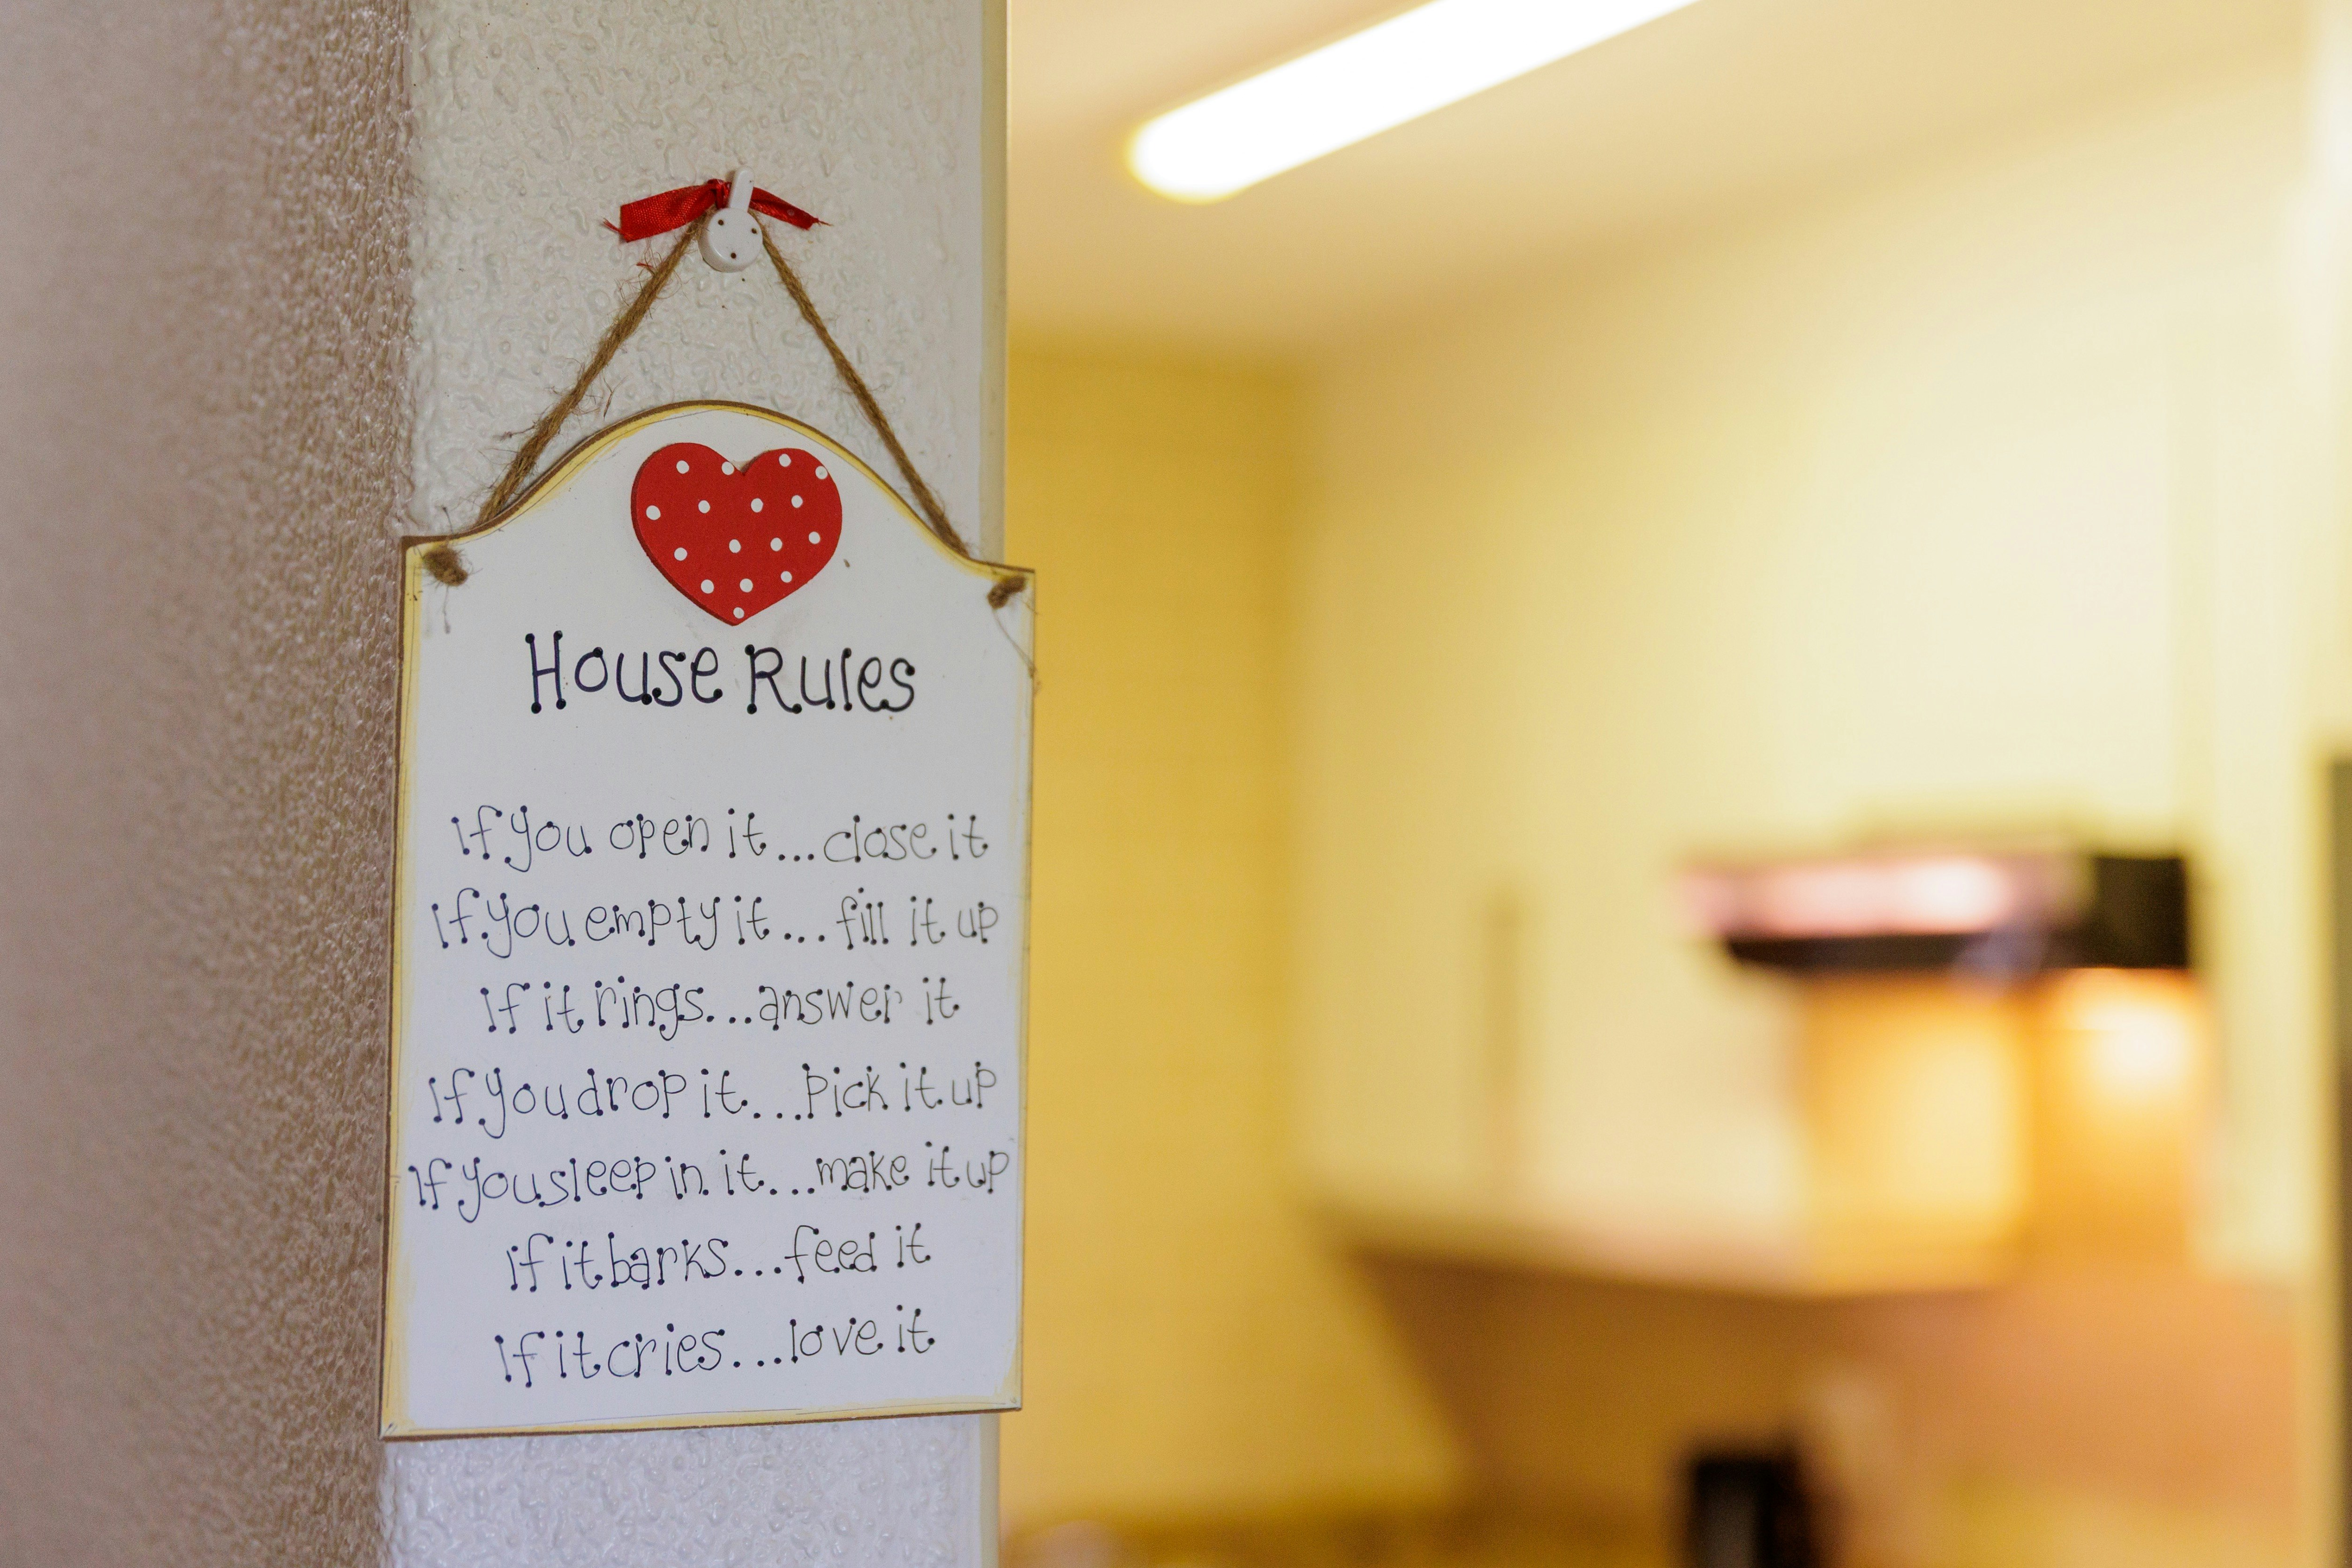 House Rules
If you open it...close it
If you empty it...fill it up
If it rings...answer it
If you drop it...Pick it up
If you sleep in it...make it up
If it barks...feed it
If it cries...love it